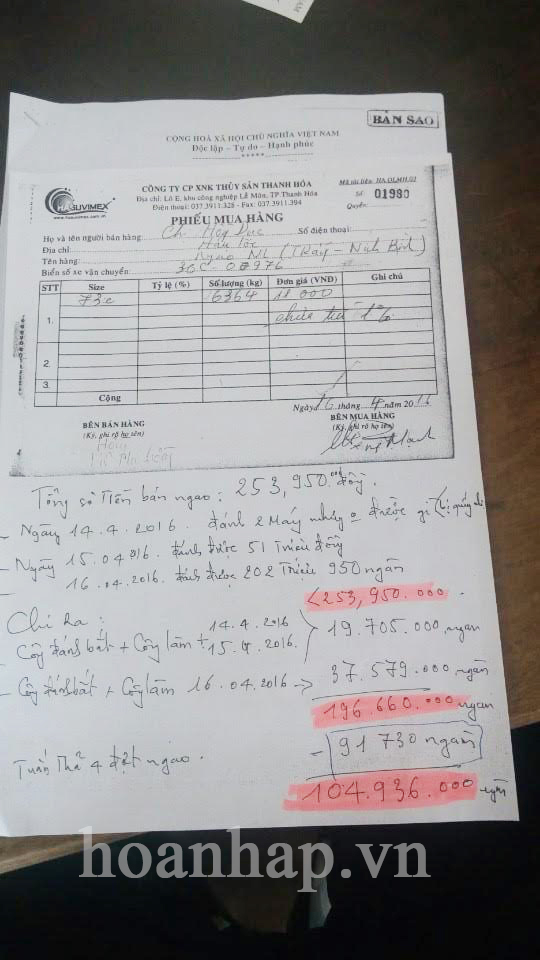 BẢN SAO
CỘNG HOÀ XÃ HỘI CHỦ NGHĨA VIỆT NAM
Độc lập - Tự do - Hạnh phúc
HASUVIMEX
www.hasuvimex.com.vn
CÔNG TY CP XNK THỦY SẢN THANH HÓA
Địa chỉ: Lô E, khu công nghiệp Lễ Môn, TP Thanh Hóa
Điện thoại: 037.3911.328 - Fax: 037.3911.394
Số 01980
Quyển:
PHIẾU MUA HÀNG
Họ và tên người bán hàng: Số điện thoại:
Địa chỉ: Hậu Lộc
Tên hàng: Ngao NL
Biển số xe vận chuyển:
STT Size Tỷ lệ (%) Số lượng (kg) Đơn giá (VNĐ) Ghi chú
1. 73c 6364 11 000
1%
2.
3.
Cộng
Ngày 16 tháng 4 năm 2016
BÊN BÁN HÀNG BÊN MUA HÀNG
(Ký, ghi rõ họ tên) (Ký, ghi rõ họ tên)
Tổng số Tiền bán ngao: 253,950.000 đồng.
- Ngày 14.4.2016. đánh 2 Máy được gì
- Ngày 15.04.2016. đánh được 51 Triệu đồng
- 16.04.2016. đánh được 202 Triệu 950 ngàn
253,950.000.
Chi Ra:
14.4.2016
Công đánh bắt + Công làm + 15.4.2016. 19.705.000 ngàn
- Công đánh bắt + Công làm 16.04.2016 -> 37.579.000 ngàn
196.660.000 ngàn
- 91730 ngàn
Tuấn Thả 4 đợt ngao.
104.936.000 ngàn
hoanhap.vn